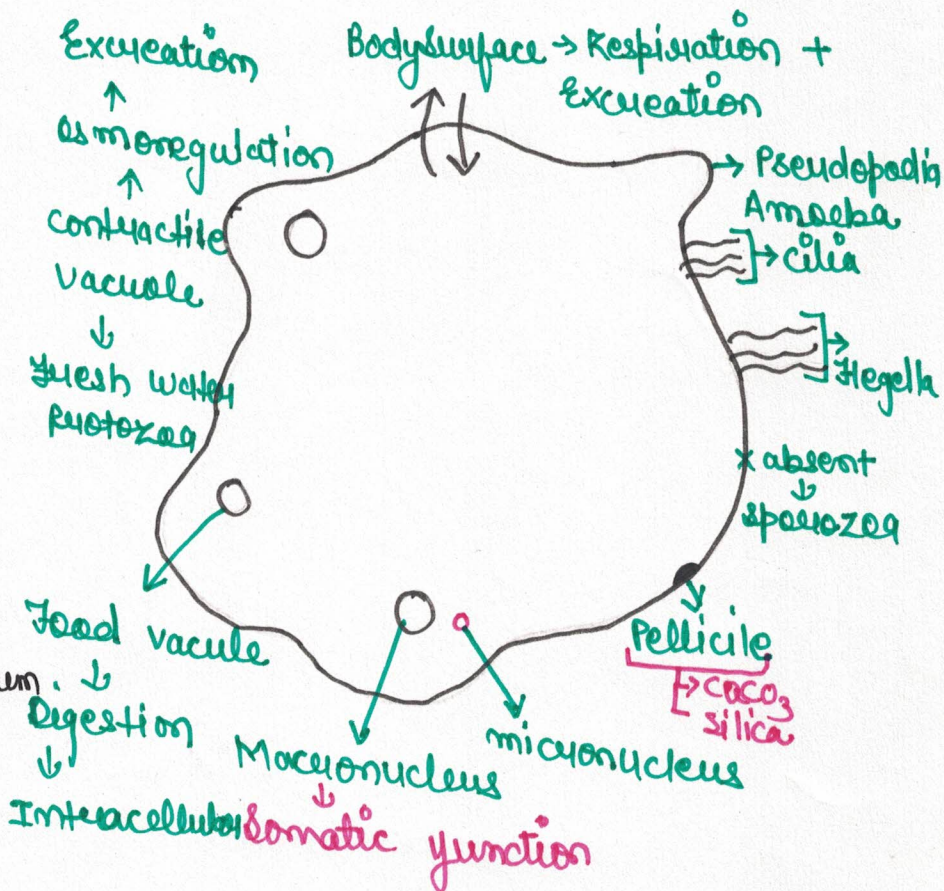 Excreation
↑
Osmoregulation
↑
Contractile
Vacuole
↓
Fresh water
Protozoa
Body Surface → Respiration +
Excreation
→ Pseudopodia
Amoeba
→ Cilia
→ Flegella
x absent
↓
Sporozoa
Pellicile
→ CaCO₃
Silica
Food vacule
↓
Digestion
↓
Intracellular
Macronucleus
↓
Somatic function
micronucleus